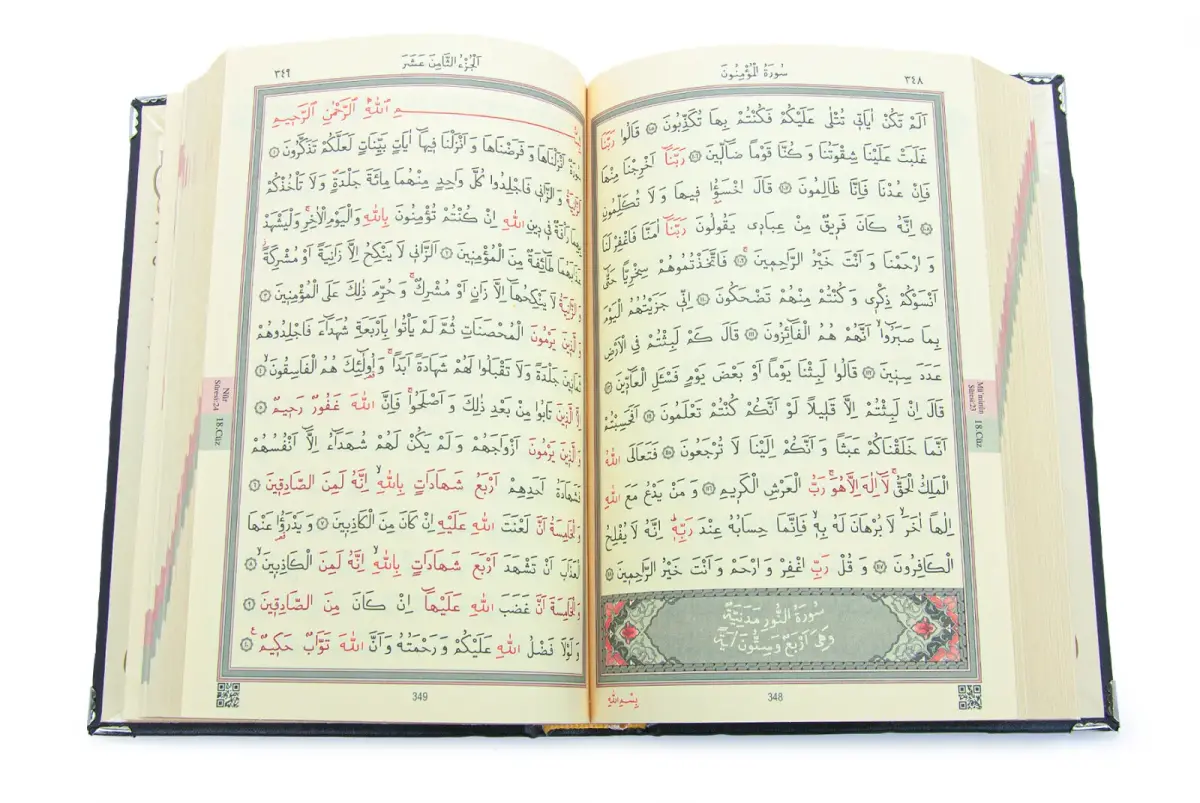 ٣٤٨
سُورَةُ الْمُؤْمِنُونَ
اَلَمْ تَكُنْ اٰيَاتٖى تُتْلٰى عَلَيْكُمْ فَكُنْتُمْ بِهَا تُكَذِّبُونَ ﴿١٠٥﴾ قَالُوا رَبَّنَا
غَلَبَتْ عَلَيْنَا شِقْوَتُنَا وَ كُنَّا قَوْمًا ضَٓالّٖينَ ﴿١٠٦﴾ رَبَّنَٓا اَخْرِجْنَا مِنْهَا
فَاِنْ عُدْنَا فَاِنَّا ظَالِمُونَ ﴿١٠٧﴾ قَالَ اخْسَؤُ۫ا فٖيهَا وَ لَا تُكَلِّمُونِ
﴿١٠٨﴾ اِنَّهُ كَانَ فَرٖيقٌ مِنْ عِبَادٖى يَقُولُونَ رَبَّنَٓا اٰمَنَّا فَاغْفِرْ لَنَا
وَ ارْحَمْنَا وَ اَنْتَ خَيْرُ الرَّاحِمٖينَ ﴿١٠٩﴾ فَاتَّخَذْتُمُوهُمْ سِخْرِيًّا حَتّٰٓى
اَنْسَوْكُمْ ذِكْرٖى وَ كُنْتُمْ مِنْهُمْ تَضْحَكُونَ ﴿١١٠﴾ اِنّٖى جَزَيْتُهُمُ الْيَوْمَ
بِمَا صَبَرُٓوا اَنَّهُمْ هُمُ الْفَٓائِزُونَ ﴿١١١﴾ قَالَ كَمْ لَبِثْتُمْ فِى الْاَرْضِ
عَدَدَ سِنٖينَ ﴿١١٢﴾ قَالُوا لَبِثْنَا يَوْمًا اَوْ بَعْضَ يَوْمٍ فَسْـَٔلِ الْعَٓادّٖينَ ﴿١١٣﴾
قَالَ اِنْ لَبِثْتُمْ اِلَّا قَلٖيلًا لَوْ اَنَّكُمْ كُنْتُمْ تَعْلَمُونَ ﴿١١٤﴾ اَفَحَسِبْتُمْ
اَنَّمَا خَلَقْنَاكُمْ عَبَثًا وَ اَنَّكُمْ اِلَيْنَا لَا تُرْجَعُونَ ﴿١١٥﴾ فَتَعَالَى اللّٰهُ
الْمَلِكُ الْحَقُّۚ لَٓا اِلٰهَ اِلَّا هُوَۚ رَبُّ الْعَرْشِ الْكَرٖيمِ ﴿١١٦﴾ وَ مَنْ يَدْعُ مَعَ اللّٰهِ
اِلٰهًا اٰخَرَۙ لَا بُرْهَانَ لَهُ بِهٖۙ فَاِنَّمَا حِسَابُهُ عِنْدَ رَبِّهٖؕ اِنَّهُ لَا يُفْلِحُ
الْكَافِرُونَ ﴿١١٧﴾ وَ قُلْ رَبِّ اغْفِرْ وَ ارْحَمْ وَ اَنْتَ خَيْرُ الرَّاحِمٖينَ ﴿١١٨﴾
سُورَةُ النُّورِ مَدَنِيَّةٌ
وَهِىَ اَرْبَعٌ وَسِتُّونَ اٰيَةً
Mü'minûn
Sûresi:23
18.Cüz
348
بِسْمِ اللّٰهِ
اَلْجُزْءُ الثَّامِنَ عَشَرَ
٣٤٩
اللّٰهِ الرَّحْمٰنِ الرَّحٖيمِ
اَنْزَلْنَاهَا وَ فَرَضْنَاهَا وَ اَنْزَلْنَا فٖيهَٓا اٰيَاتٍ بَيِّنَاتٍ لَعَلَّكُمْ تَذَكَّرُونَ ﴿١﴾
وَ الزَّانٖى فَاجْلِدُوا كُلَّ وَاحِدٍ مِنْهُمَا مِائَةَ جَلْدَةٍ وَ لَا تَاْخُذْكُمْ
بِهِمَا رَاْفَةٌ فٖى دٖينِ اللّٰهِ اِنْ كُنْتُمْ تُؤْمِنُونَ بِاللّٰهِ وَ الْيَوْمِ الْاٰخِرِۚ وَلْيَشْهَدْ
عَذَابَهُمَا طَٓائِفَةٌ مِنَ الْمُؤْمِنٖينَ ﴿٢﴾ اَلزَّانٖى لَا يَنْكِحُ اِلَّا زَانِيَةً اَوْ مُشْرِكَةًؗ
وَ الزَّانِيَةُ لَا يَنْكِحُهَٓا اِلَّا زَانٍ اَوْ مُشْرِكٌۚ وَ حُرِّمَ ذٰلِكَ عَلَى الْمُؤْمِنٖينَ ﴿٣﴾
وَ الَّذٖينَ يَرْمُونَ الْمُحْصَنَاتِ ثُمَّ لَمْ يَاْتُوا بِاَرْبَعَةِ شُهَدَٓاءَ فَاجْلِدُوهُمْ
ثَمَانٖينَ جَلْدَةً وَلَا تَقْبَلُوا لَهُمْ شَهَادَةً اَبَدًاۚ وَ اُو۬لٰٓئِكَ هُمُ الْفَاسِقُونَۙ ﴿٤﴾
اِلَّا الَّذٖينَ تَابُوا مِنْ بَعْدِ ذٰلِكَ وَ اَصْلَحُواۚ فَاِنَّ اللّٰهَ غَفُورٌ رَحٖيمٌ ﴿٥﴾
وَ الَّذٖينَ يَرْمُونَ اَزْوَاجَهُمْ وَ لَمْ يَكُنْ لَهُمْ شُهَدَٓاءُ اِلَّٓا اَنْفُسُهُمْ
فَشَهَادَةُ اَحَدِهِمْ اَرْبَعُ شَهَادَاتٍ بِاللّٰهِۙ اِنَّهُ لَمِنَ الصَّادِقٖينَ ﴿٦﴾
وَ الْخَامِسَةُ اَنَّ لَعْنَتَ اللّٰهِ عَلَيْهِ اِنْ كَانَ مِنَ الْكَاذِبٖينَ ﴿٧﴾ وَ يَدْرَؤُ۬ا عَنْهَا
الْعَذَابَ اَنْ تَشْهَدَ اَرْبَعَ شَهَادَاتٍ بِاللّٰهِۙ اِنَّهُ لَمِنَ الْكَاذِبٖينَۙ ﴿٨﴾
وَ الْخَامِسَةَ اَنَّ غَضَبَ اللّٰهِ عَلَيْهَٓا اِنْ كَانَ مِنَ الصَّادِقٖينَ ﴿٩﴾
وَ لَوْلَا فَضْلُ اللّٰهِ عَلَيْكُمْ وَ رَحْمَتُهُ وَ اَنَّ اللّٰهَ تَوَّابٌ حَكٖيمٌ ﴿١٠﴾
Nûr
Sûresi:24
18.Cüz
349